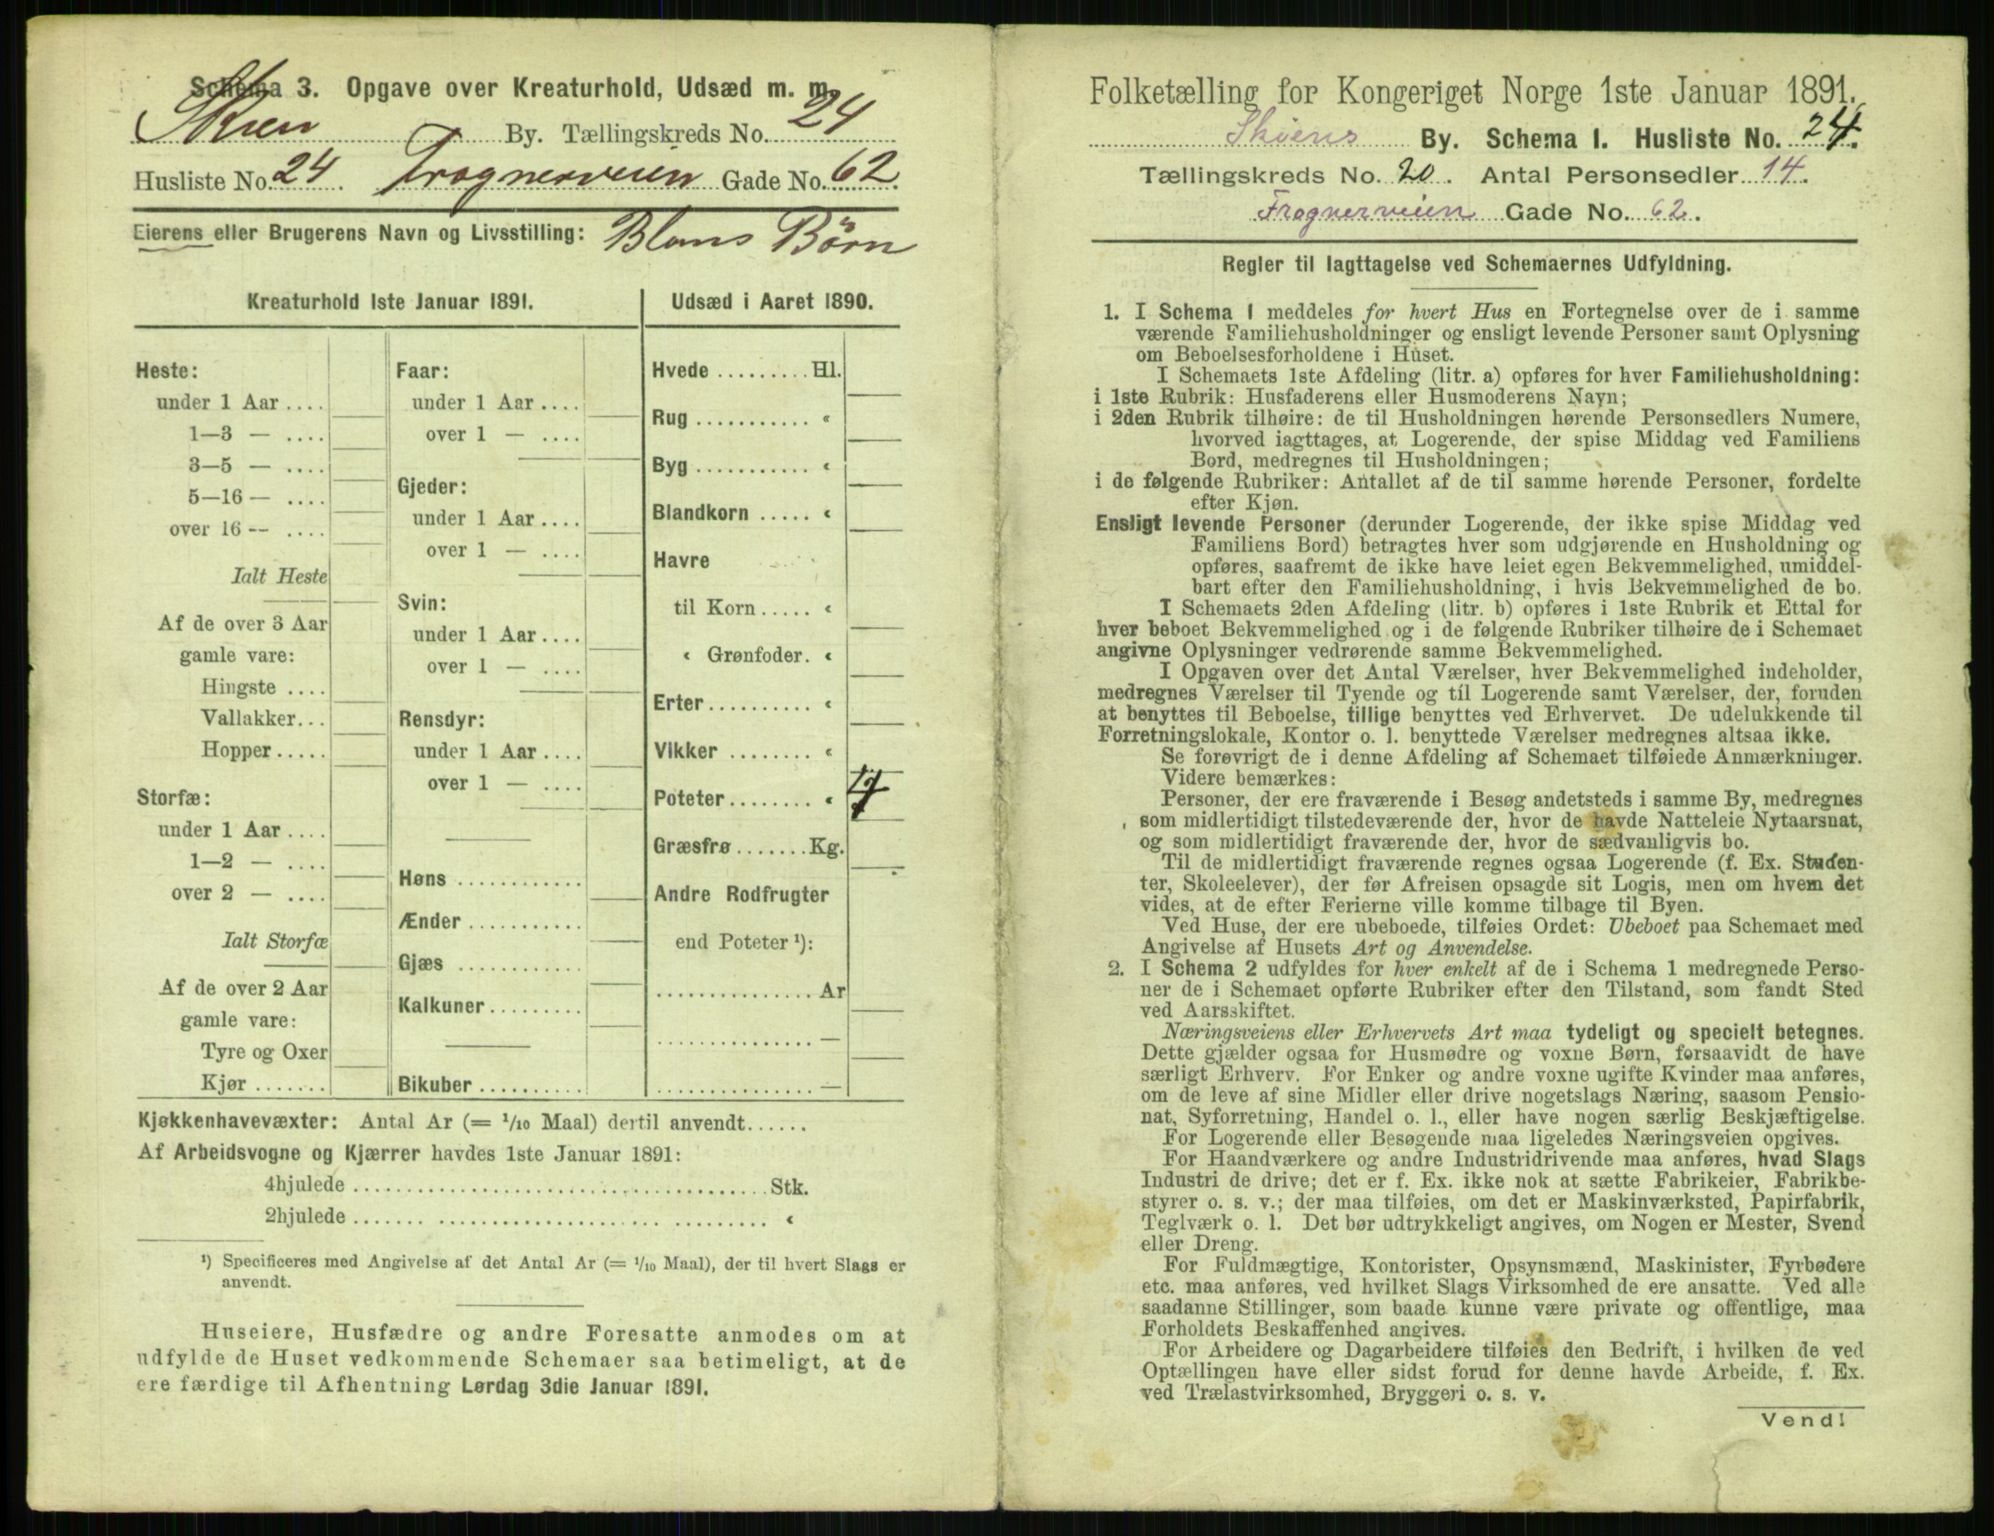 Schema 3. Opgave over Kreaturhold, Udsæd m. m.
Skien By. Tællingskreds No. 24
Husliste No. 24. Frognerveien Gade No. 62.
Eierens eller Brugerens Navn og Livsstilling: Bloms Børn
Kreaturhold 1ste Januar 1891.
Heste:
under 1 Aar ....
1—3 — ....
3—5 — ....
5—16 — ....
over 16 — ....
Ialt Heste
Af de over 3 Aar
gamle vare:
Hingste ....
Vallakker...
Hopper .....
Storfæ:
under 1 Aar ....
1—2 — ....
over 2 — ....
Ialt Storfæ
Af de over 2 Aar
gamle vare:
Tyre og Oxer
Kjør .......
Faar:
under 1 Aar ....
over 1 — ....
Gjeder:
under 1 Aar ....
over 1 — ....
Svin:
under 1 Aar ....
over 1 — ....
Rensdyr:
under 1 Aar ....
over 1 — ....
Høns ............
Ænder ...........
Gjæs ............
Kalkuner .........
Bikuber ..........
Udsæd i Aaret 1890.
Hvede ......... Hl.
Rug ........... «
Byg ........... «
Blandkorn ..... «
Havre
til Korn ..... «
« Grønfoder. «
Erter .......... «
Vikker ........ «
Poteter ........ «
Græsfrø ....... Kg.
Andre Rodfrugter
end Poteter ¹):
............... Ar
............... —
............... —
Kjøkkenhavevæxter: Antal Ar (= 1/10 Maal) dertil anvendt......
Af Arbeidsvogne og Kjærrer havdes 1ste Januar 1891:
4hjulede ...................................... Stk.
2hjulede ....... ..................... ......... «
¹) Specificeres med Angivelse af det Antal Ar (= 1/10 Maal), der til hvert Slags er
anvendt.
Huseiere, Husfædre og andre Foresatte anmodes om at
udfylde de Huset vedkommende Schemaer saa betimeligt, at de
ere færdige til Afhentning Lørdag 3die Januar 1891.
Folketælling for Kongeriget Norge 1ste Januar 1891.
Skiens By. Schema I. Husliste No. 24.
Tællingskreds No. 20. Antal Personsedler 14.
Frognerveien Gade No. 62.
Regler til Iagttagelse ved Schemaernes Udfyldning.
1. I Schema I meddeles for hvert Hus en Fortegnelse over de i samme
værende Familiehusholdninger og ensligt levende Personer samt Oplysning
om Beboelsesforholdene i Huset.
I Schemaets 1ste Afdeling (litr. a) opføres for hver Familiehusholdning:
i 1ste Rubrik: Husfaderens eller Husmoderens Navn;
i 2den Rubrik tilhøire: de til Husholdningen hørende Personsedlers Numere,
hvorved iagttages, at Logerende, der spise Middag ved Familiens
Bord, medregnes til Husholdningen;
i de følgende Rubriker: Antallet af de til samme hørende Personer, fordelte
efter Kjøn.
Ensligt levende Personer (derunder Logerende, der ikke spise Middag ved
Familiens Bord) betragtes hver som udgjørende en Husholdning og
opføres, saafremt de ikke have leiet egen Bekvemmelighed, umiddel-
bart efter den Familiehusholdning, i hvis Bekvemmelighed de bo.
I Schemaets 2den Afdeling (litr. b) opføres i 1ste Rubrik et Ettal for
hver beboet Bekvemmelighed og i de følgende Rubriker tilhøire de i Schemaet
angivne Oplysninger vedrørende samme Bekvemmelighed.
I Opgaven over det Antal Værelser, hver Bekvemmelighed indeholder,
medregnes Værelser til Tyende og til Logerende samt Værelser, der, foruden
at benyttes til Beboelse, tillige benyttes ved Erhvervet. De udelukkende til
Forretningslokale, Kontor o. l. benyttede Værelser medregnes altsaa ikke.
Se forøvrigt de i denne Afdeling af Schemaet tilføiede Anmærkninger.
Videre bemærkes:
Personer, der ere fraværende i Besøg andetsteds i samme By, medregnes
som midlertidigt tilstedeværende der, hvor de havde Natteleie Nytaarsnat,
og som midlertidigt fraværende der, hvor de sædvanligvis bo.
Til de midlertidigt fraværende regnes ogsaa Logerende (f. Ex. Studen-
ter, Skoleelever), der før Afreisen opsagde sit Logis, men om hvem det
vides, at de efter Ferierne ville komme tilbage til Byen.
Ved Huse, der ere ubeboede, tilføies Ordet: Ubeboet paa Schemaet med
Angivelse af Husets Art og Anvendelse.
2. I Schema 2 udfyldes for hver enkelt af de i Schema 1 medregnede Perso-
ner de i Schemaet opførte Rubriker efter den Tilstand, som fandt Sted
ved Aarsskiftet.
Næringsveiens eller Erhvervets Art maa tydeligt og specielt betegnes.
Dette gjælder ogsaa for Husmødre og voxne Børn, forsaavidt de have
særligt Erhverv. For Enker og andre voxne ugifte Kvinder maa anføres,
om de leve af sine Midler eller drive nogetslags Næring, saasom Pensio-
nat, Syforretning, Handel o. l., eller have nogen særlig Beskjæftigelse.
For Logerende eller Besøgende maa ligeledes Næringsveien opgives.
For Haandværkere og andre Industridrivende maa anføres, hvad Slags
Industri de drive; det er f. Ex. ikke nok at sætte Fabrikeier, Fabrikbe-
styrer o. s. v.; der maa tilføies, om det er Maskinværksted, Papirfabrik,
Teglværk o. l. Det bør udtrykkeligt angives, om Nogen er Mester, Svend
eller Dreng.
For Fuldmægtige, Kontorister, Opsynsmænd, Maskinister, Fyrbødere
etc. maa anføres, ved hvilket Slags Virksomhed de ere ansatte. Ved alle
saadanne Stillinger, som baade kunne være private og offentlige, maa
Forholdets Beskaffenhed angives.
For Arbeidere og Dagarbeidere tilføies den Bedrift, i hvilken de ved
Optællingen have eller sidst forud for denne havde Arbeide, f. Ex.
ved Trælastvirksomhed, Bryggeri o. s. v.
Vend!